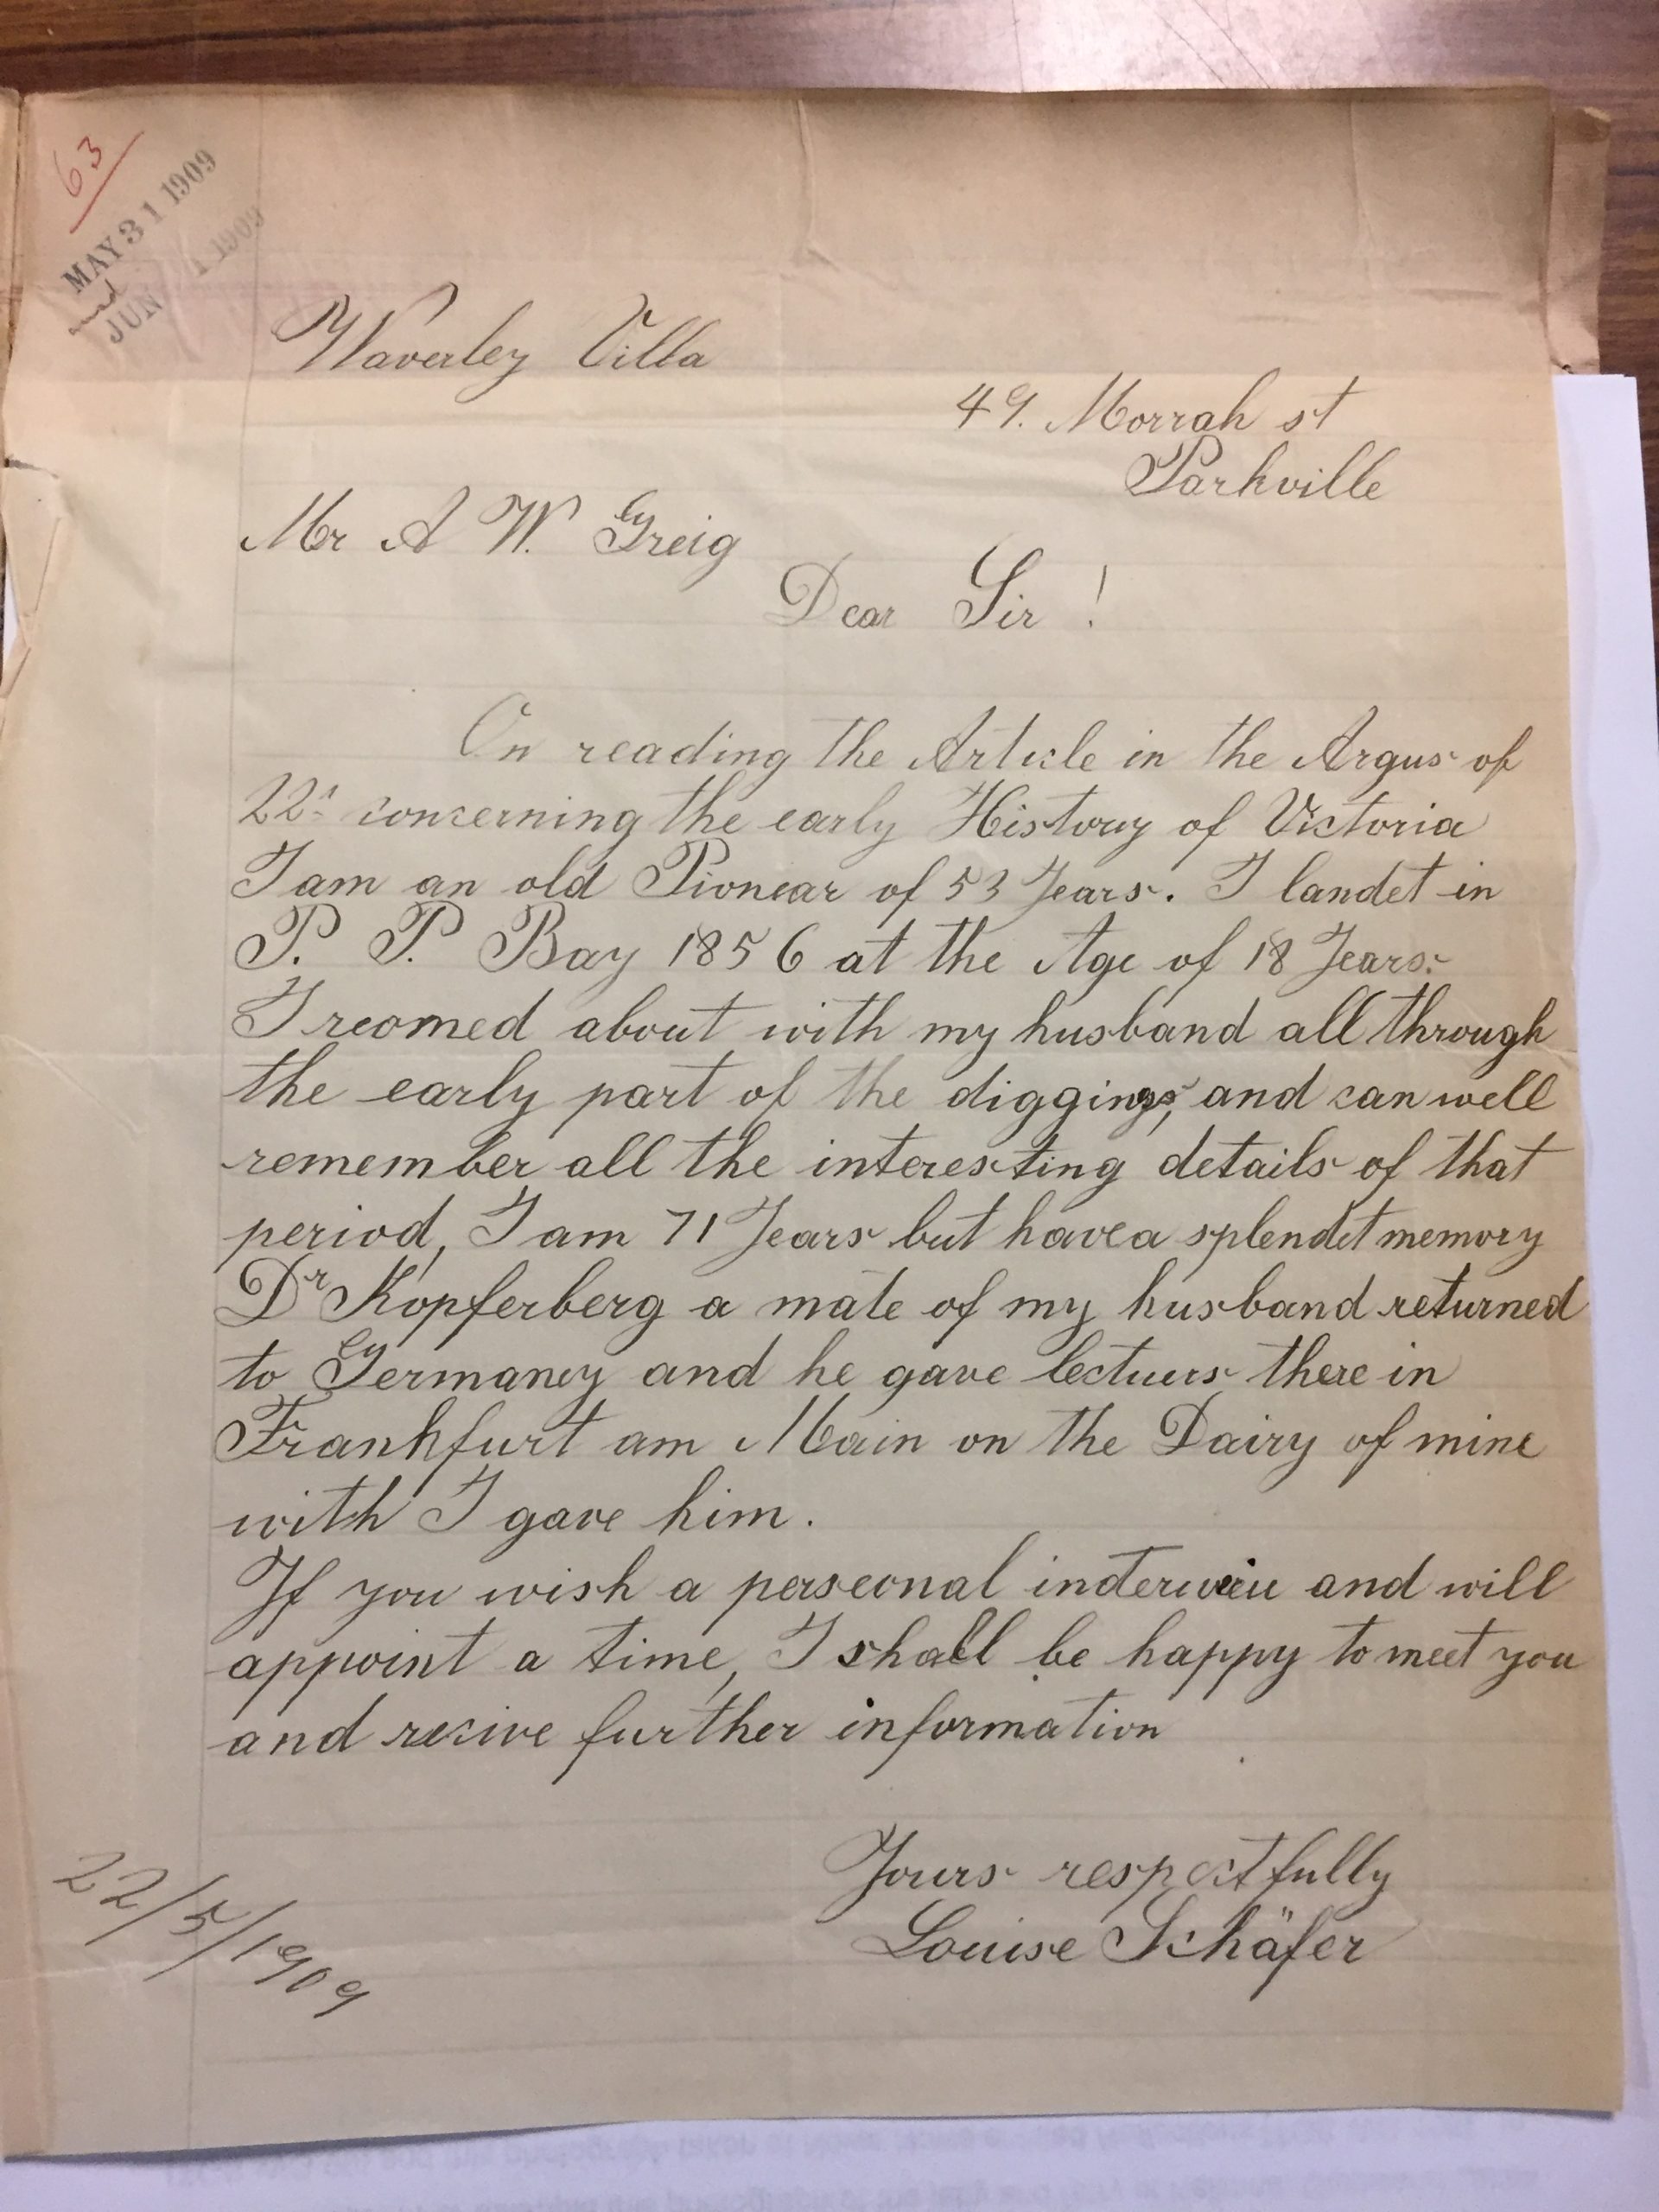 63
MAY 31 1909
and
JUN 1 1909
Waverley Villa
49. Morrah st
Parkville
Mr A W. Greig
Dear Sir !
On reading the Article in the Argus of
22d concerning the early History of Victoria
I am an old Pionear of 53 Years. I landet in
P. P. Bay 1856 at the Age of 18 Years.
I reomed about with my husband all through
the early part of the diggings, and can well
remember all the interesting details of that
period, I am 71 Years but have a splendet memory
Dr Kopferberg a mate of my husband returned
to Germaney and he gave lectuers there in
Frankfurt am Main on the Dairy of mine
with I gave him.
If you wish a perseonal and will
appoint a time, I shall be happy to meet you
and recive further information
Yours respectfully
Louise Schäfer
22/5/1909